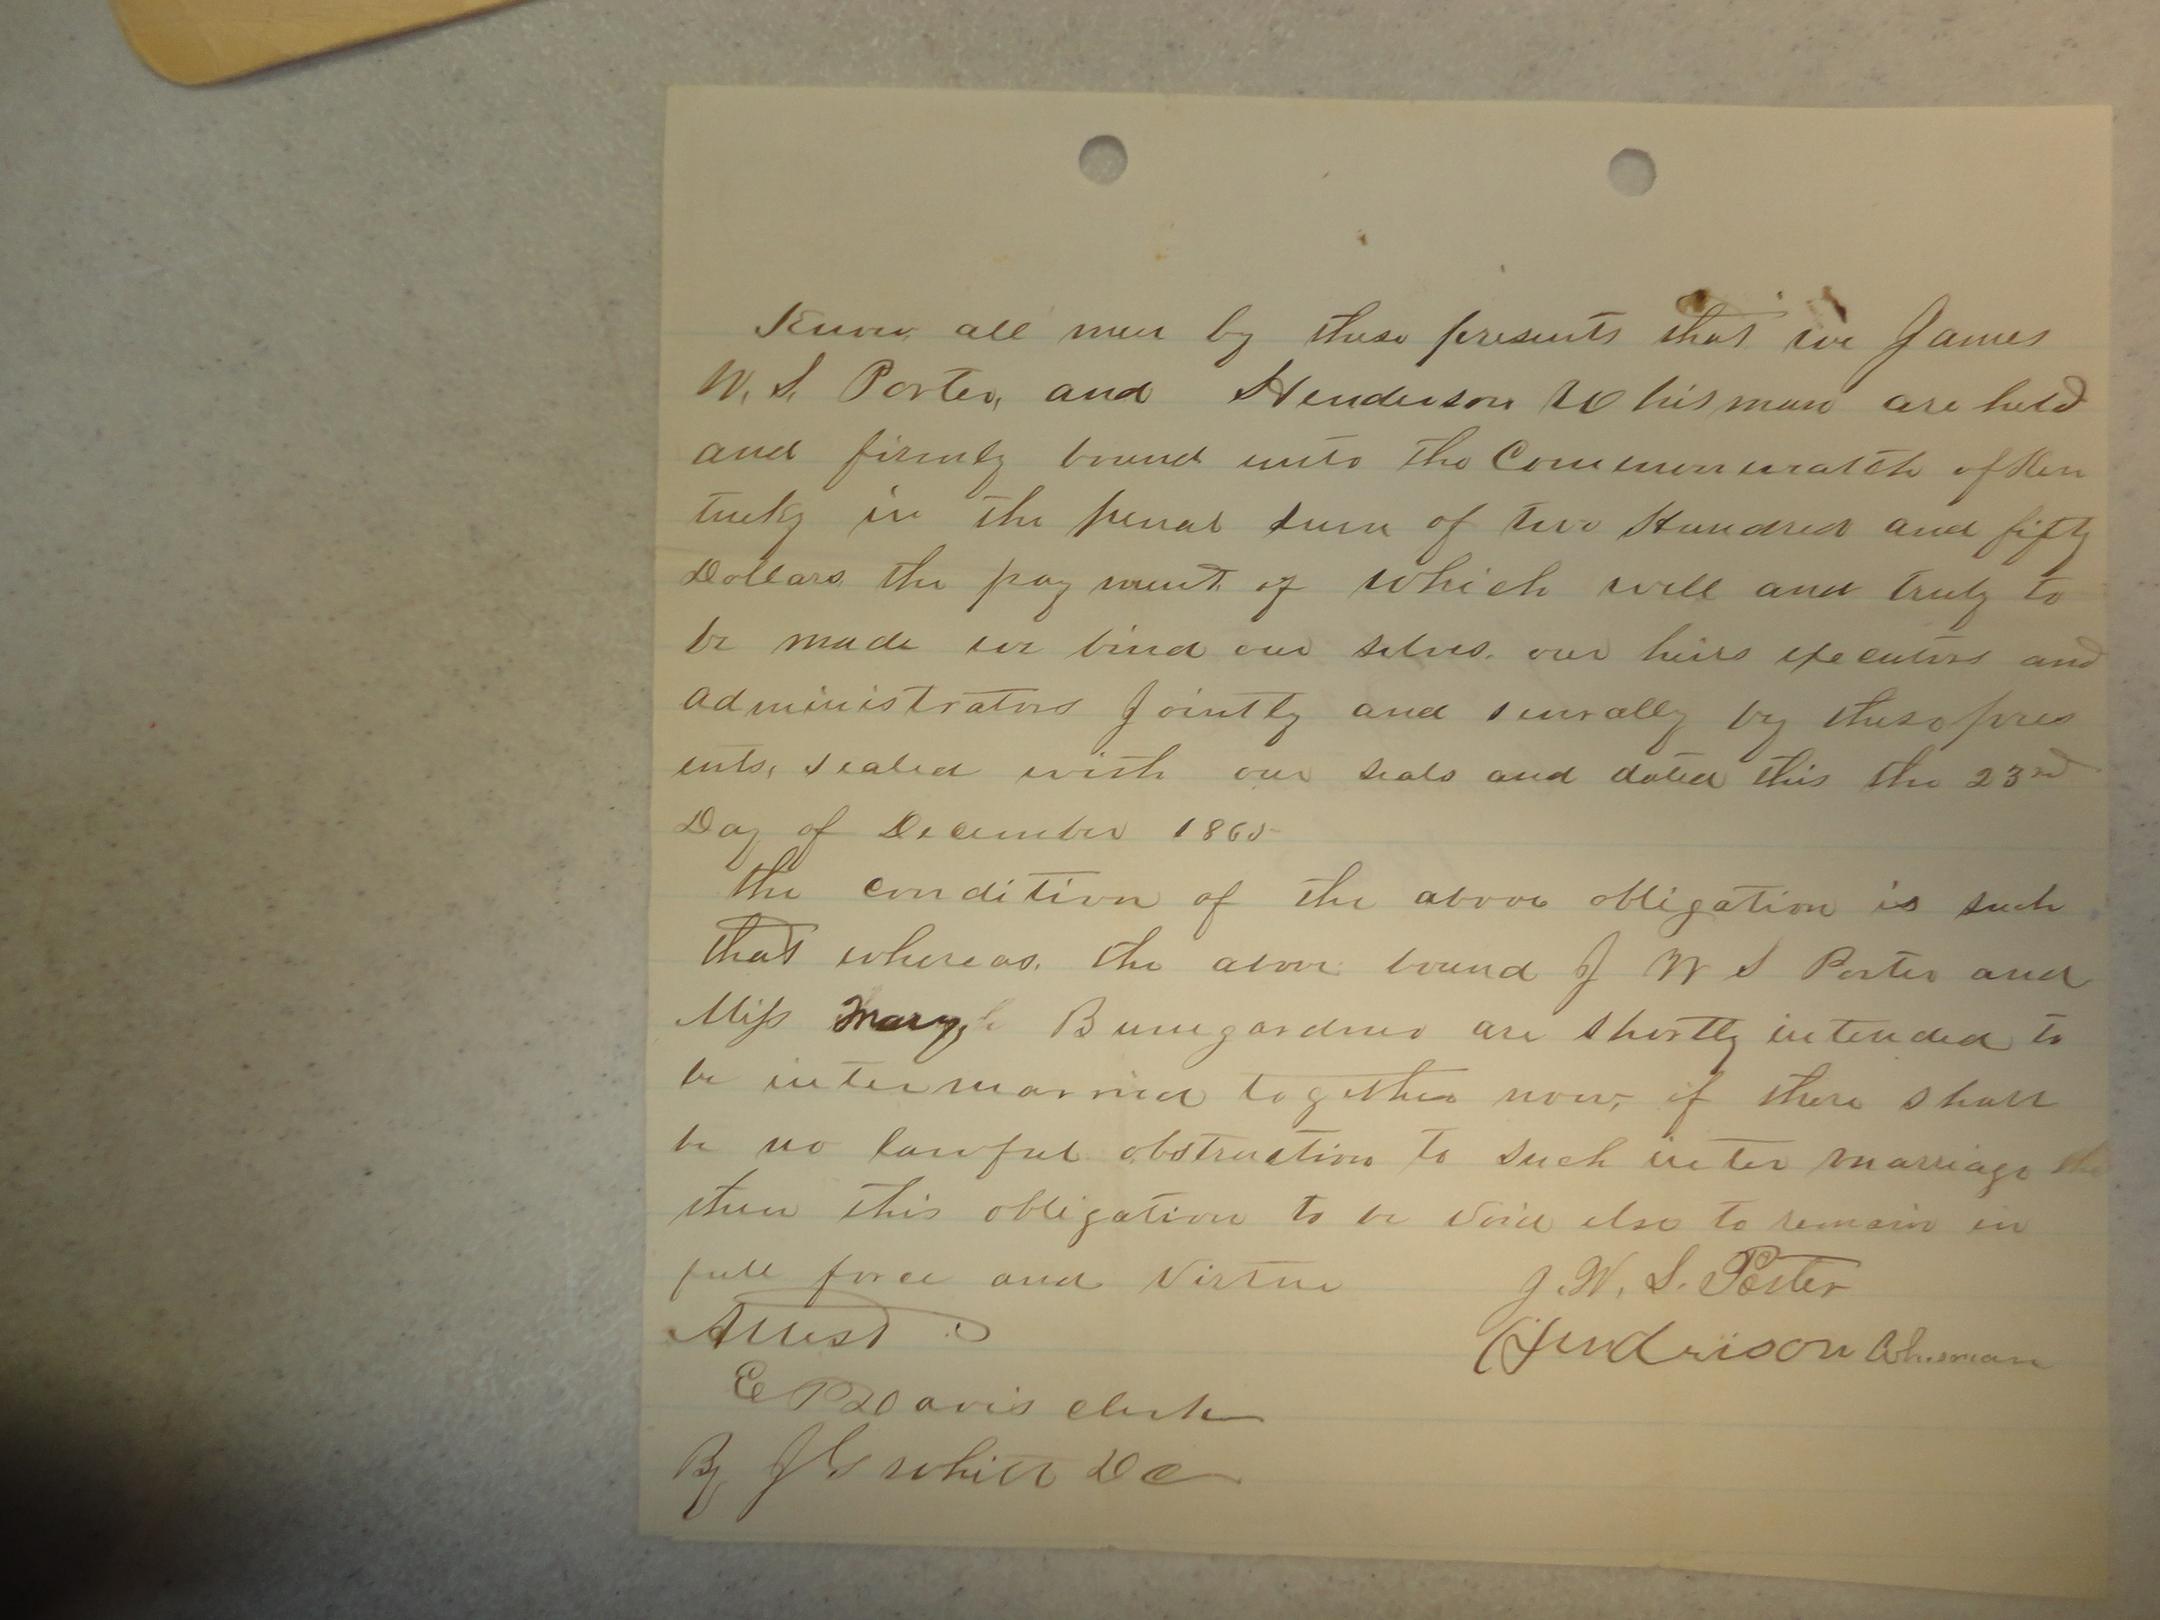 Know all men by these presents that we James
W. S. Porter, and Henderson Whisman are held
and firmly bound unto the Commonwealth of Ken
tucky in the penal sum of two Hundred and fifty
Dollars the pay ment of which well and truly to
be made we bind our selves. our heirs executors and
administrators Jointly and severally by these pres
ents, sealed with our seals and dated this the 23rd
Day of December 1865
the condition of the above obligation is such
that whereas. the above bound J W S Porter and
Miss Mary Bumgardner are shortly intended to
be intermarried together now, if there shall
be no lawful obstruction to such inter marriage the
then this obligation to be void else to remain in
full force and virtue J. W. S. Porter
Attest Hendrison Whisman
E P Davis clerk
By J G Whitt DC